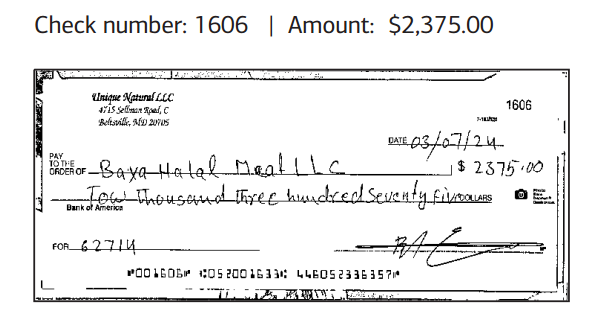 Check number: 1606 | Amount: $2,375.00
Unique Natural LLC
4715 Sellman Road, C
Beltsville, MD 20705
1606
DATE 03/07/24
PAY
TO THE
ORDER OF Baya Halal Meat LLC $ 2375.00
Tow Thousand Three hundred Seventy Five DOLLARS
Bank of America
FOR 62714
⑈001606⑈ ⑆052001633⑆ 446052336357⑈